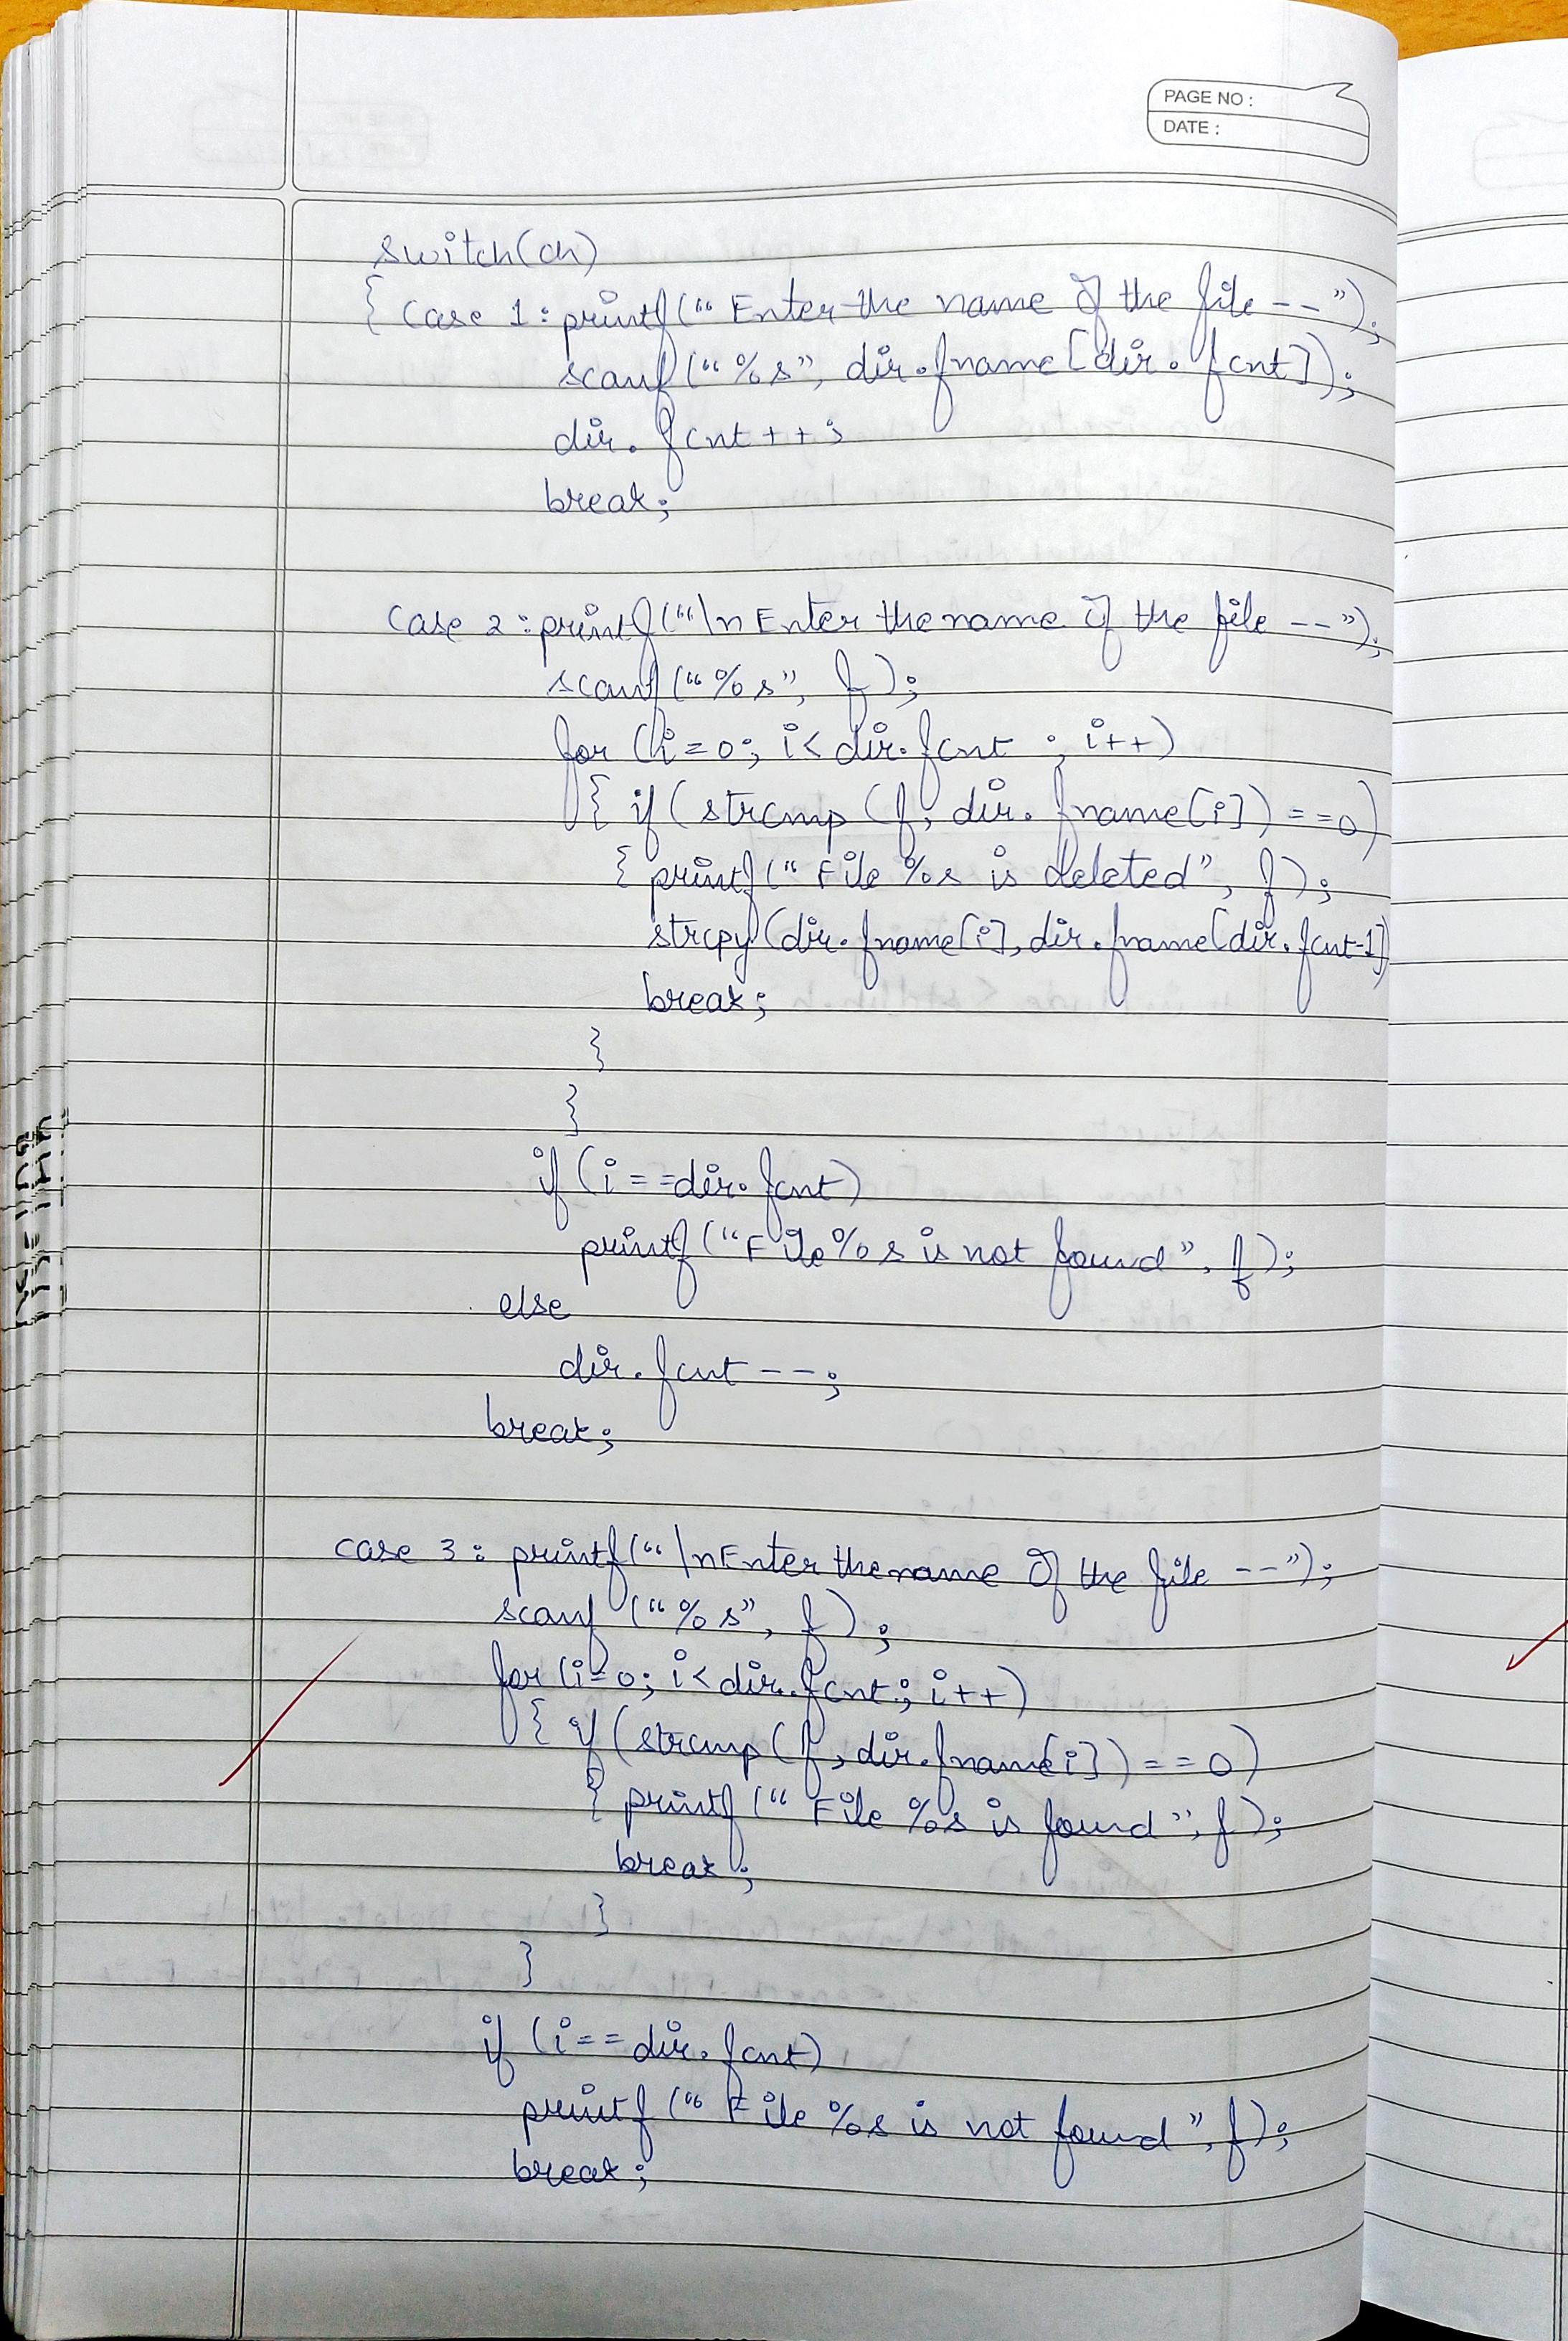 PAGE NO :
DATE :
switch(ch)
{ case 1: printf(“ Enter the name of the file -- ”);
scanf(“%s”, dir.fname[dir.fcnt]);
dir.fcnt++;
break;
case 2: printf(“\n Enter the name of the file --”);
scanf(“%s”, f);
for (i=0; i<dir.fcnt ; i++)
{ if (strcmp (f, dir.fname[i]) ==0)
{ printf(“ File %s is deleted”, f);
strcpy(dir.fname[i], dir.fname[dir.fcnt-1]
break;
}
}
if (i==dir.fcnt)
printf(“File %s is not found”, f);
else
dir.fcnt --;
break;
case 3: printf(“\nEnter the name of the file --”);
scanf (“%s”, f);
for (i=0; i<dir.fcnt; i++)
{ if (strcmp(f, dir.fname[i])==0)
{ printf (“ File %s is found”, f);
break;
}
}
if (i==dir.fcnt)
printf (“ File %s is not found”, f);
break;